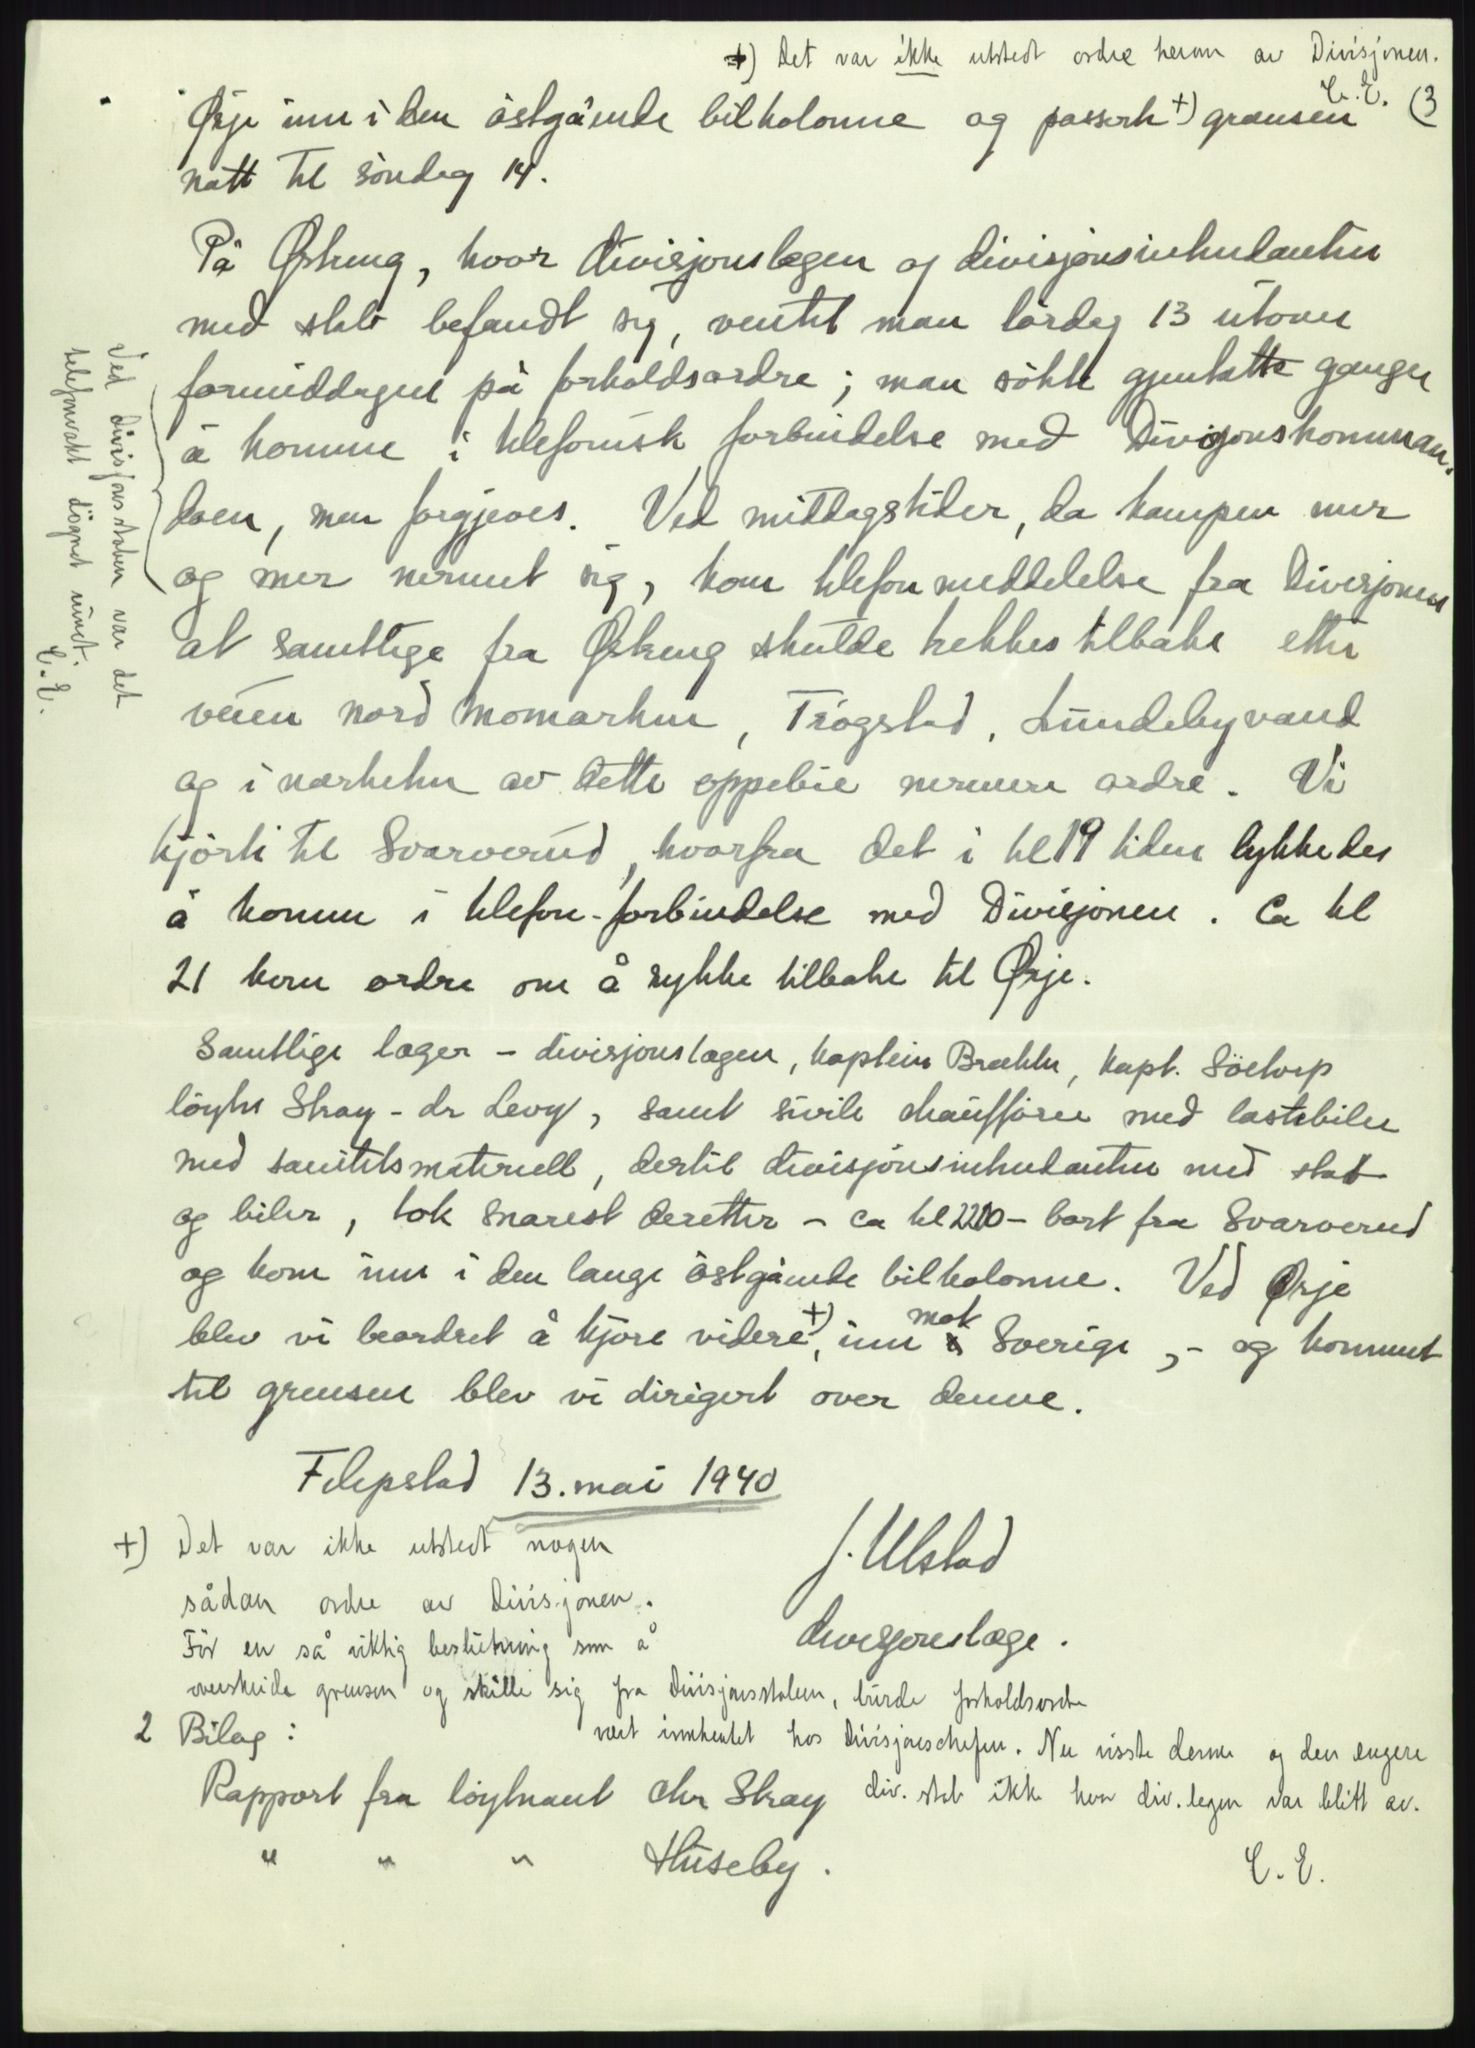 +) Det var ikke utstedt ordre herom av Divisjonen.
C. E. (3
Ørje inn i den östgående bilkolonne og passerte +) grensen
natt til söndag 14.
På Østeng, hvor divisjonslægen og divisjonsintendanten
med stab befandt sig, ventet man lördag 13 utover
formiddagen på forholdsordre; man sökte gjentatte ganger
å komme i telefonisk forbindelse med Divisjonskomman-
doen, men forgjeves. Ved middagstider, da kampen mer
og mer nermet sig, kom telefonmeddelelse fra Divisjonen
at samtlige fra Østeng skulde trekkes tilbake etter
veien nord Momarken, Trögstad, Lundebyvand
og i nærheten av dette oppebie nermere ordre. Vi
kjörte til Svarverud, hvorfra det i kl 19 tiden lykkedes
å komme i telefon-forbindelse med Divisjonen. Ca kl
21 kom ordre om å rykke tilbake til Ørje.
Samtlige læger - divisjonslægen, kaptein Brække, kapt. Söetorp
löytn Stray - dr Levy, samt sivile chaufförer med lastebiler
med sanitetsmateriell, dertil divisjonsintendanten med stab
og biler, tok snarest deretter - ca kl 2200 - bort fra Svarverud
og kom inn i den lange östgående bilkolonne. Ved Ørje
blev vi beordret å kjöre videre +), inn mot Sverige, - og kommet
til grensen blev vi dirigert over denne.
Filipstad 13. mai 1940
J. Ulstad
divisjonslæge.
Ved divisjonsstaben var det
telefonvakt dögnet rundt.
C. E.
+) Det var ikke utstedt nogen
sådan ordre av Divisjonen.
För en så viktig beslutning som å
overskride grensen og skille sig fra Divisjonsstaben, burde forholdsordre
vært innhentet hos Divisjonschefen. Nu visste denne og den engere
div. stab ikke hvor div. legen var blitt av.
C. E.
2 Bilag:
Rapport fra löytnant Chr Stray
" " " Huseby.